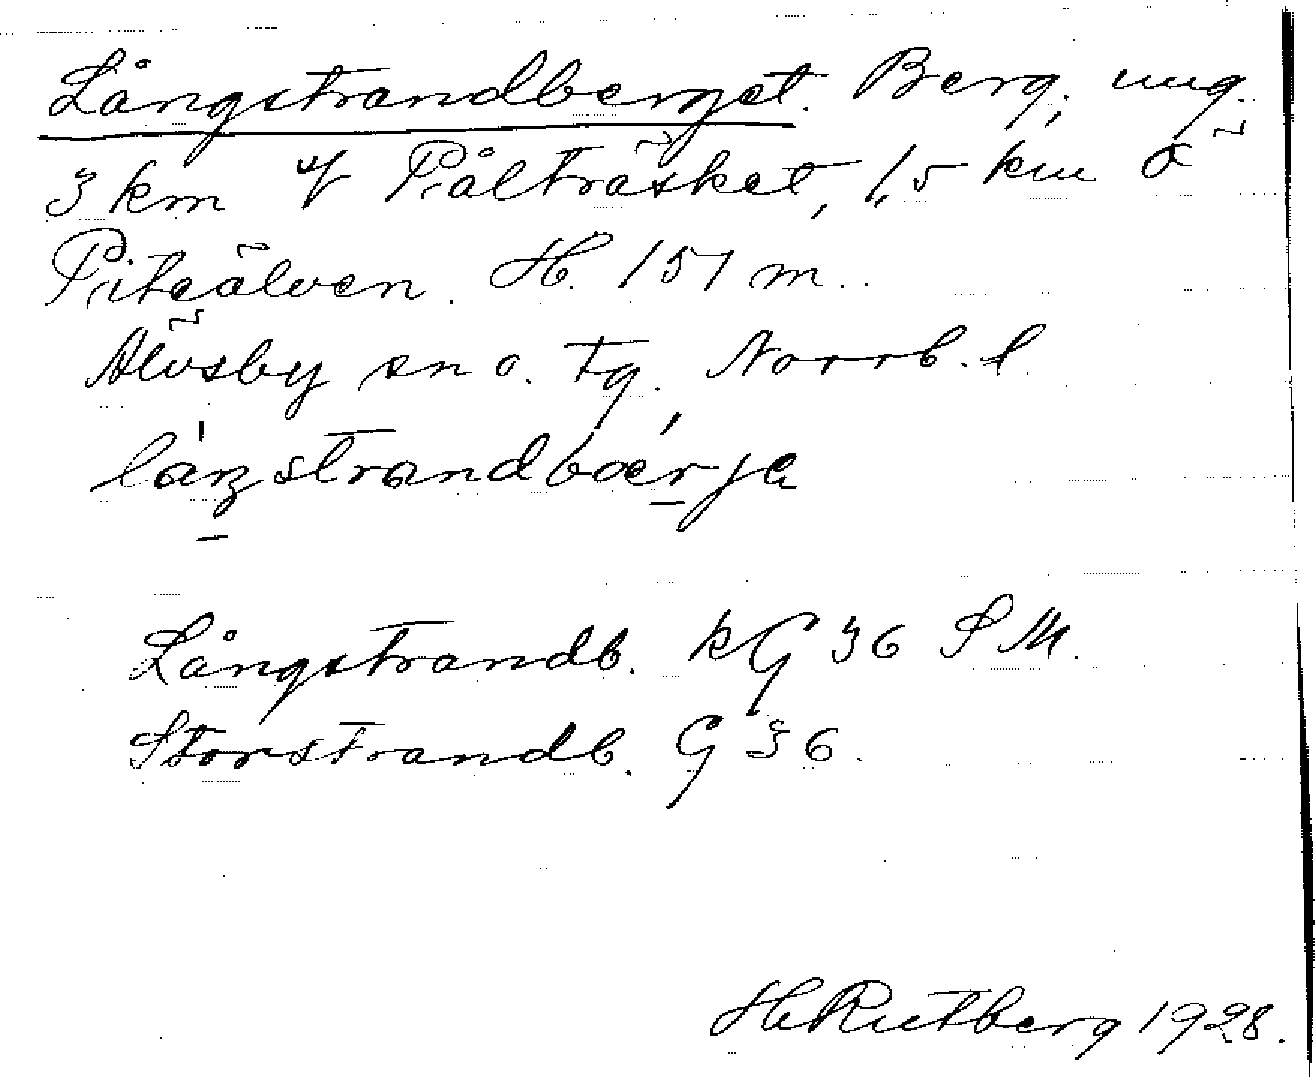 Långstrandberget. Berg, ung.
3 km V Pålträsket, 1,5 km Ö
Piteälven. H. 151 m.
Älvsby sn o. tg. Norrb. l.
Långstrandb. kG 36 S M.
Storstrandb. G 36.
H Rutberg 1928.